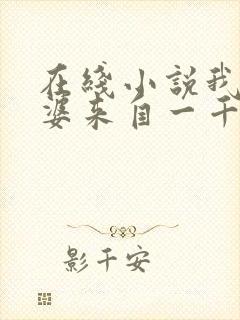 在綫小説我
婆来自一千
影千安